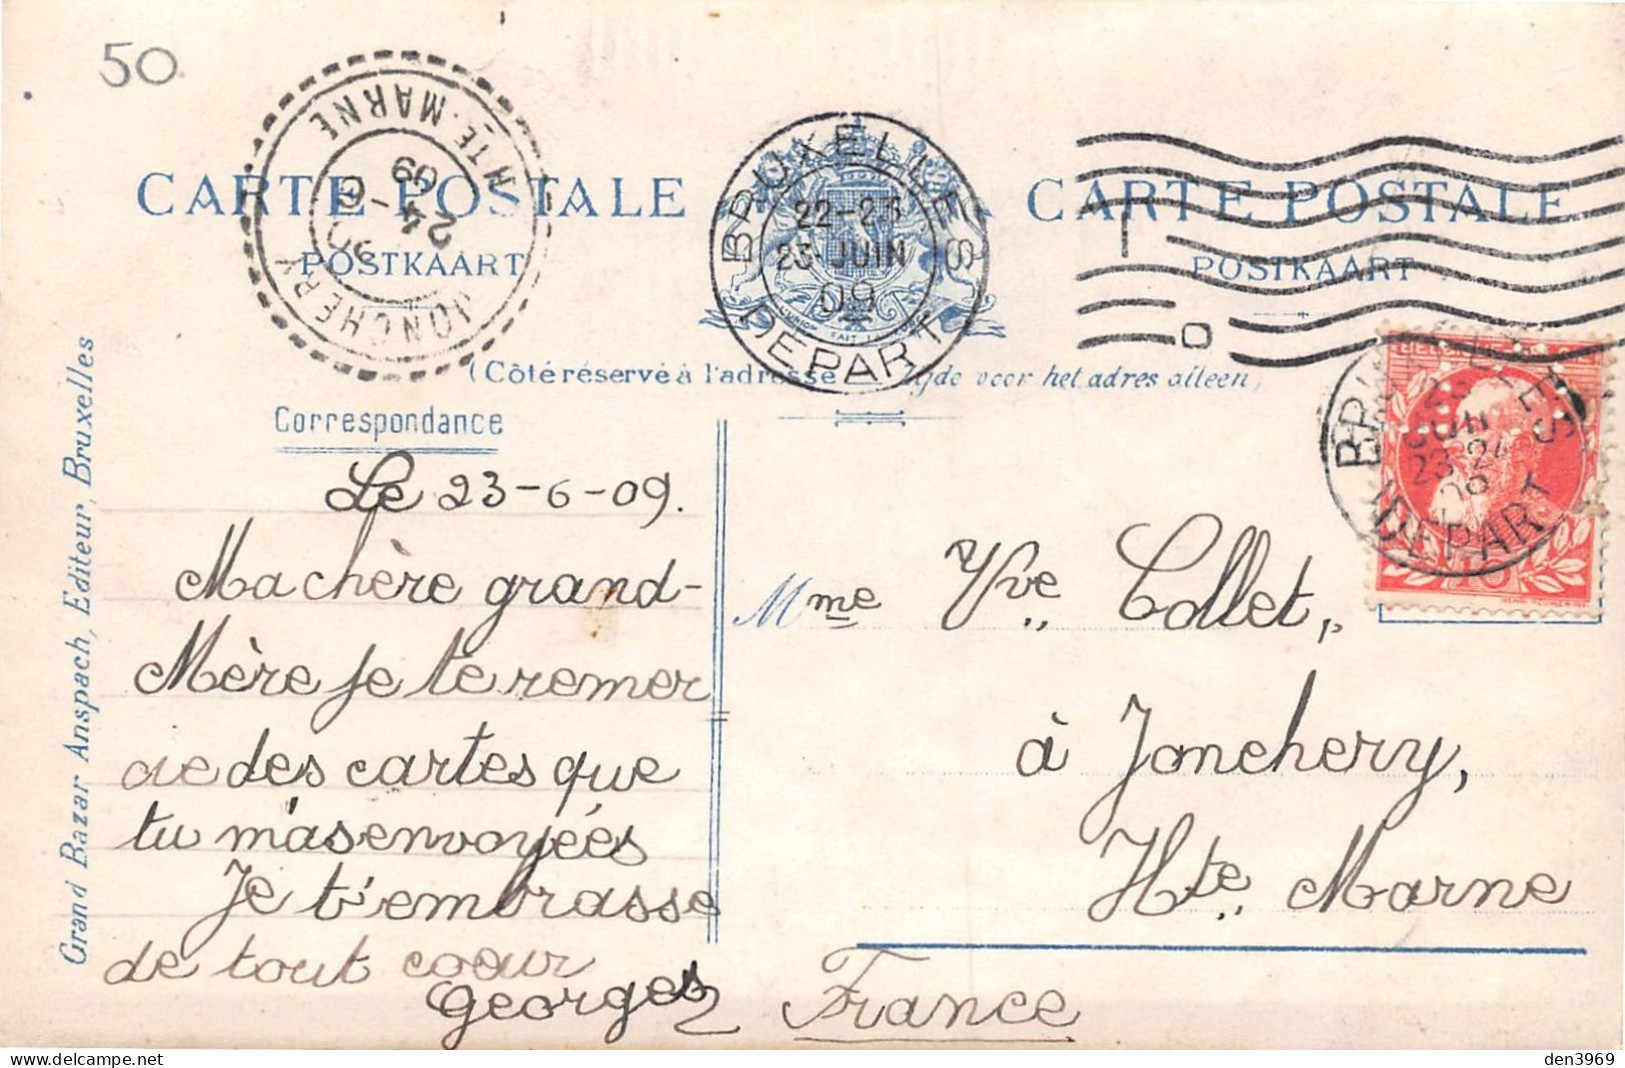 50
CARTE POSTALE
CARTE POSTALE
POSTKAART
POSTKAART
JONCHERY
HTE-MARNE
24 - 6
09
BRUXELLES
22-23
23-JUIN
09
DEPART
(Côté réservé à l'adresse
Zijde voor het adres alleen)
BRUXELLES
JUIN
23-24
09
DEPART
10
Correspondance
Le 23-6-09.
Ma chère grand-
Mère je te remer
cie des cartes que
tu m'as envoyées
Je t'embrasse
de tout coeur
Georges
Mme Vve Collet,
à Jonchery,
Hte Marne
France
Grand Bazar Anspach, Editeur, Bruxelles
den3969